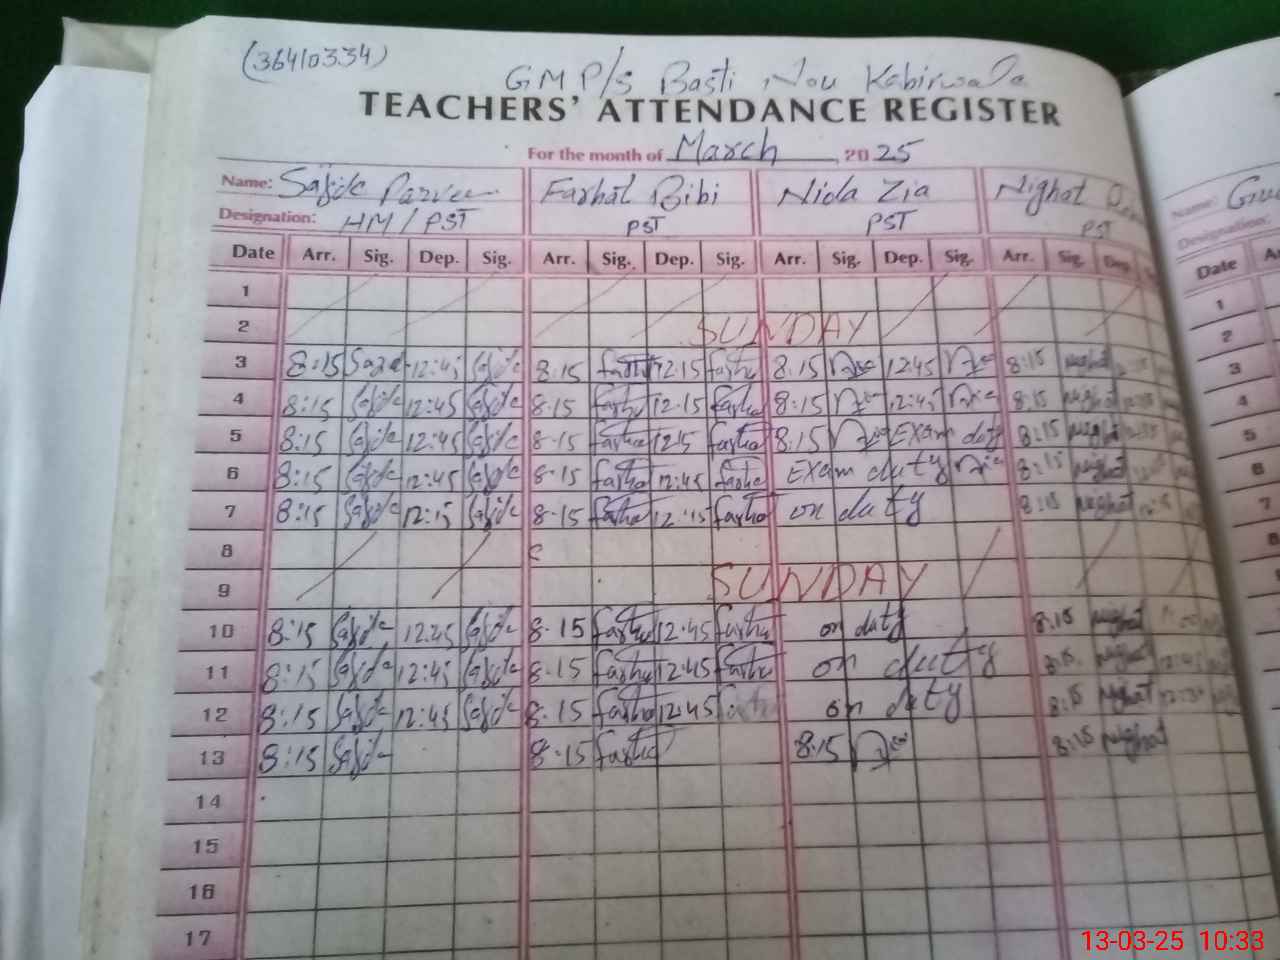 (36410334)
GMP/s Basti Nou Kabirwala
TEACHERS' ATTENDANCE REGISTER
For the month of March, 2025
Name: Sajida Parveen Farhat Bibi Nida Zia Nighat
Designation: HM/PST PST PST PST
Date Arr. Sig. Dep. Sig. Arr. Sig. Dep. Sig. Arr. Sig. Dep. Sig. Arr. Sig. Dep.
1
2 SUNDAY
3 8:15 12:45 8:15 12:15 8:15 12:45 8:15 Nighat
4 8:15 Sajida 12:45 Sajida 8-15 Farha 12-15 Farha 8:15 12:45 8:15 Nighat
5 8:15 Sajida 12:45 Sajida 8-15 Farha 1215 Farha 8:15 Exam duty 8:15 Nighat
6 8:15 Sajida 12:45 Sajida 8-15 Farha 12:45 Farha Exam duty 8:15 Nighat
7 8:15 Sajida 12:15 Sajida 8-15 Farha 12:15 Farha on duty 8:15 Nighat
8
9 SUNDAY
10 8:15 Sajida 12:45 Sajida 8-15 Farha 12:45 Farha on duty 8:15 Nighat
11 8:15 Sajida 12:45 Sajida 8-15 Farha 12:45 Farha on duty 8:15 Nighat 12:45
12 8:15 Sajida 12:45 Sajida 8-15 Farha 12:45 on duty 8:15 Nighat
13 8:15 Sajida 8-15 Farha 8:15 8:15 Nighat
14
15
16
17
Name:
Designation:
Date
1
2
3
4
5
6
7
8
13-03-25 10:33